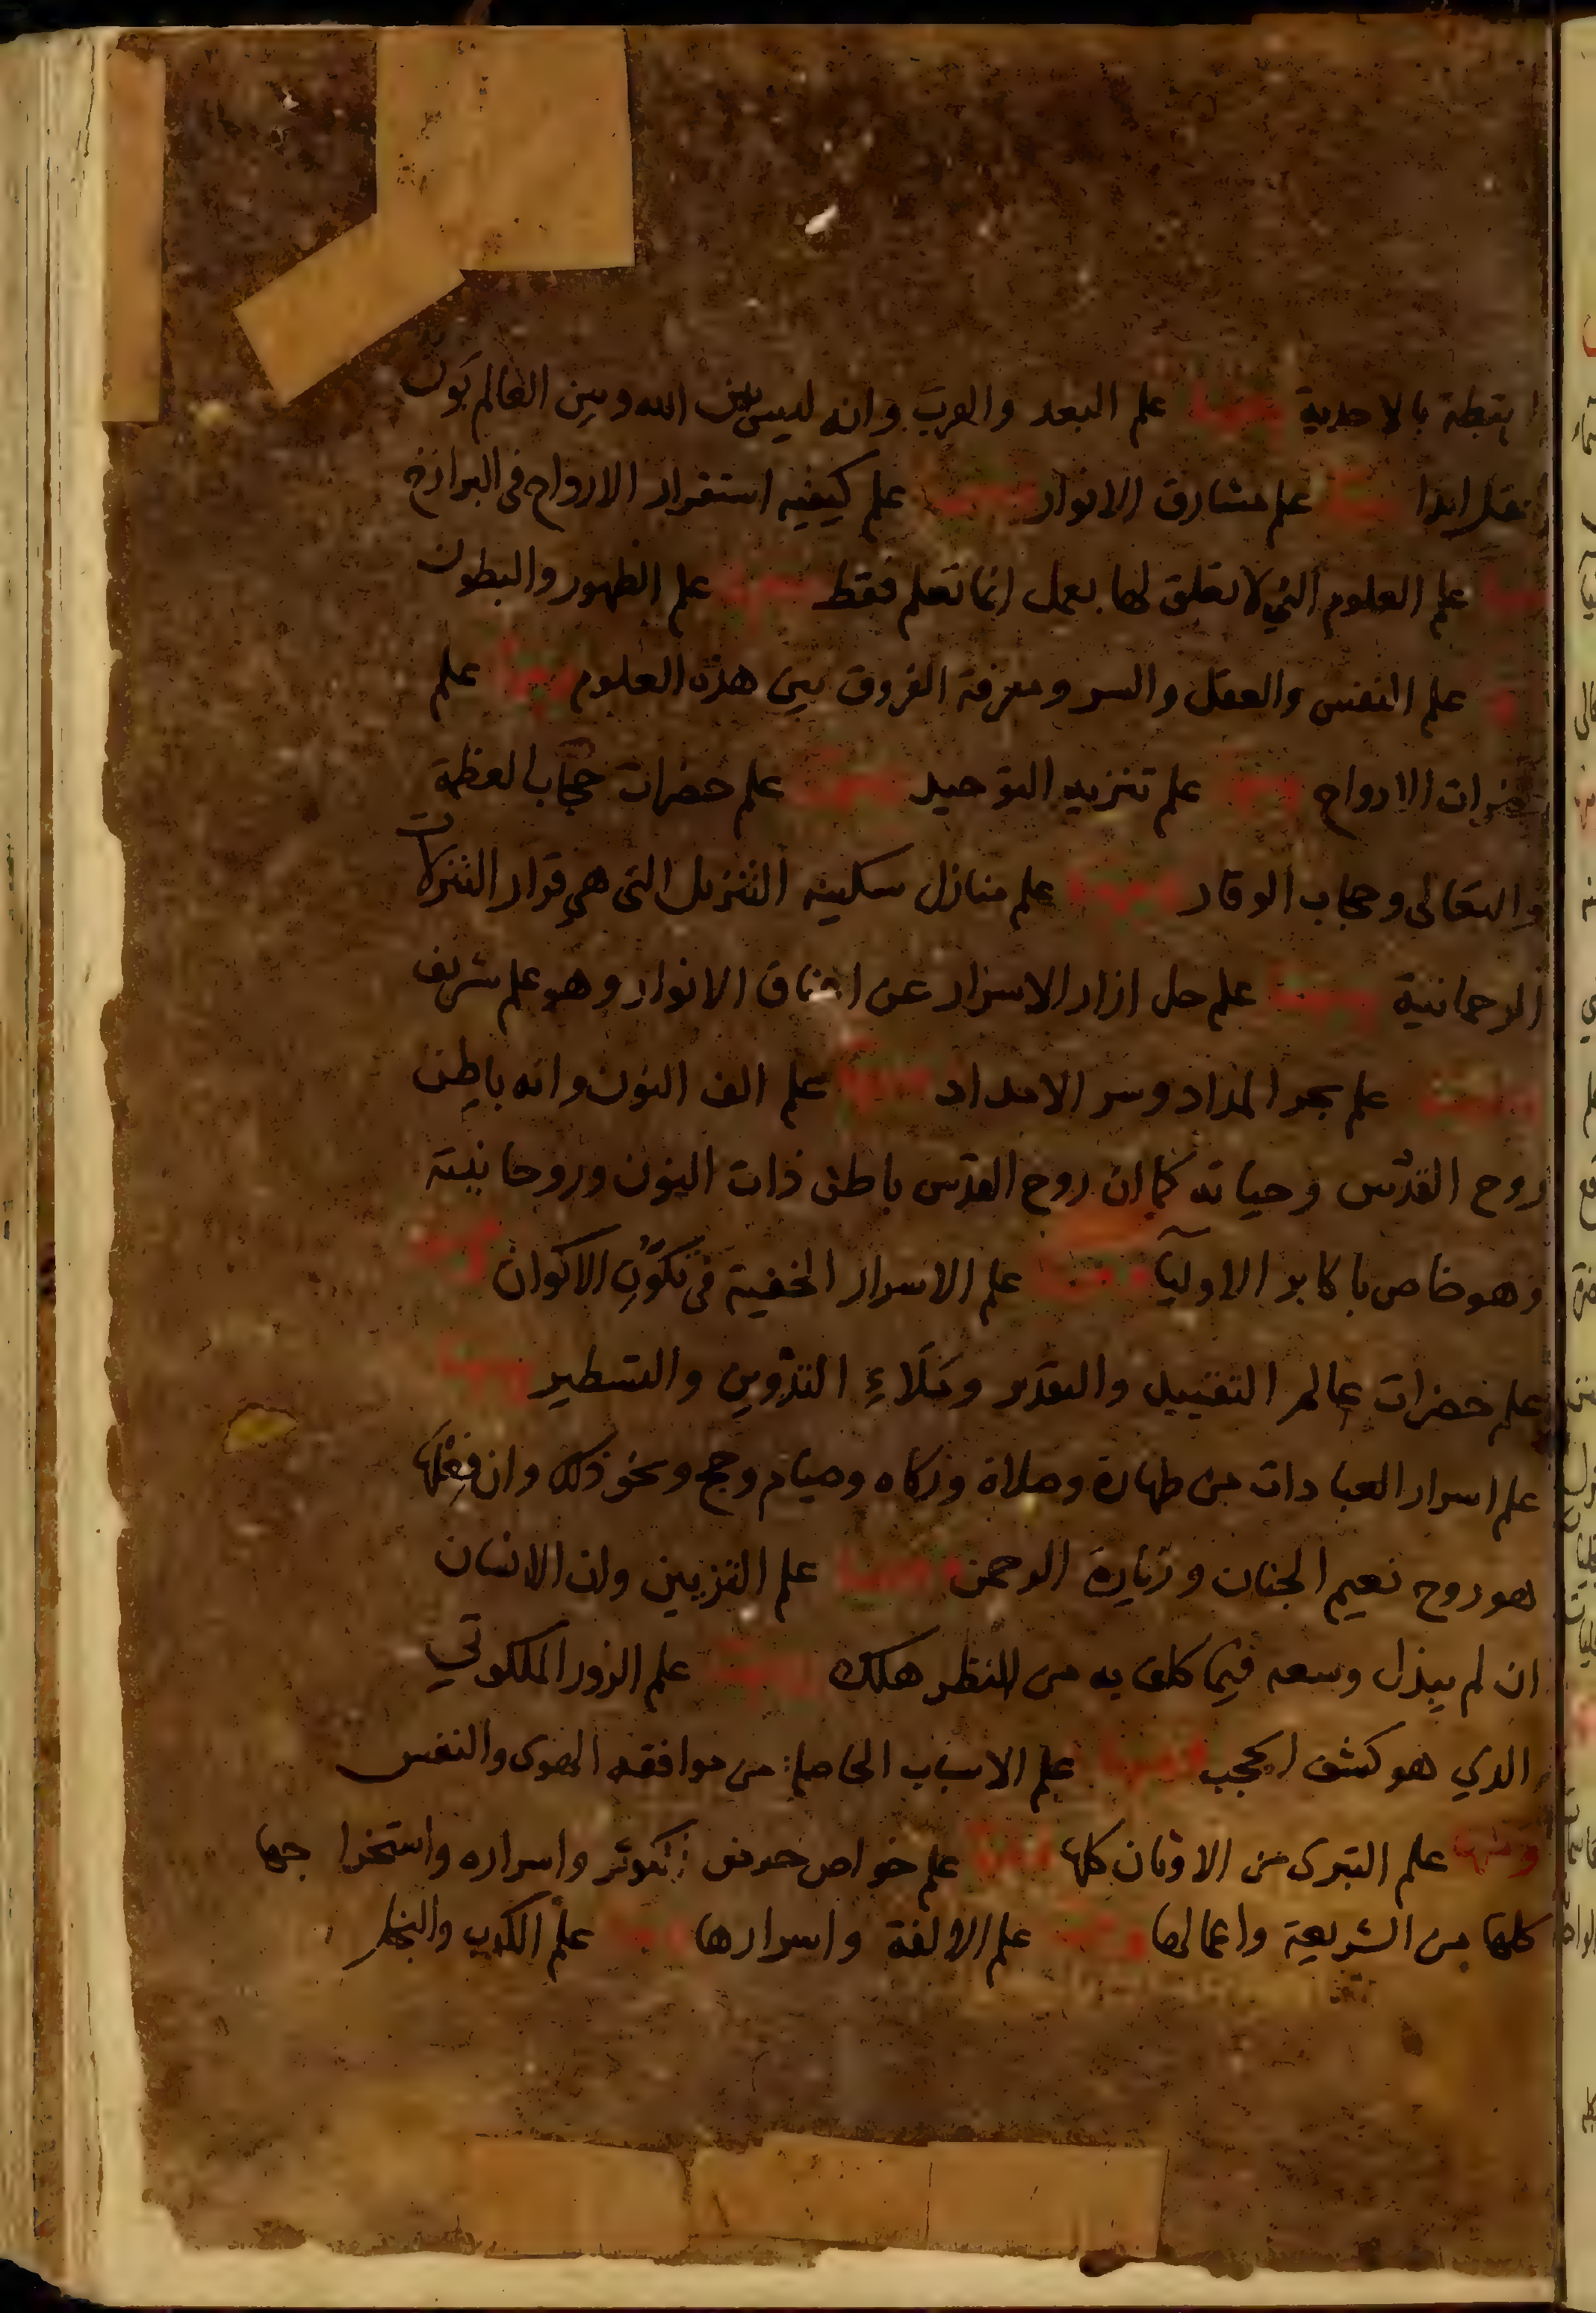 بالاحدية ومنها علم البعد والقرب وانه ليس بين الله وبين العالم بون
ابدا ومنها علم مشارق الانوار ومنها علم كيفيه استقرار الارواح في البرازخ
ومنها علم العلوم التي لا تعلق لها بعمل انما تعلم فقط ومنها علم الظهور والبطون
علم النفس والعقل والسر ومعرفة الفروق بين هذه العلوم ومنها علم
حضرات الارواح ومنها علم تنزيه التوحيد ومنها علم حضرات حجاب العظمة
والتعالى وحجاب الوقار ومنها علم منازل سكينه التنزيل التي هي قرار التنزلات
الرحمانية ومنها علم حل ازار الاسرار عن اعناق الانوار وهو علم شريف
ومنها علم بحر المداد وسر الامداد ومنها علم الف النون وانه باطن
روح القدس وحياته كما ان روح القدس باطن ذات النون وروحانيته
وهو خاص باكابر الاوليآ ومنها علم الاسرار الخفية في تكوّن الاكوان ومنها
علم حضرات عالم التقييد والتقدير وملاء التدوين والتسطير ومنها
علم اسرار العبادات من طهارة وصلاة وزكاه وصيام وحج ونحو ذلك وان فعلها
هو روح نعيم الجنان وزيارة الرحمن ومنها علم التزيين وان الانسان
ان لم يبذل وسعه فيما كلف به من النظر هلك ومنها علم الزور الملكوتي
الذي هو كشف الحجب ومنها علم الاسباب الحاصلة من موافقه الهوى والنفس
ومنها علم التبرى من الاوثان كلها ومنها علم خواص حوض الكوثر واسراره واستخراجها
كلها من الشريعة واعمالها ومنها علم الالفة واسرارها ومنها علم الكرب